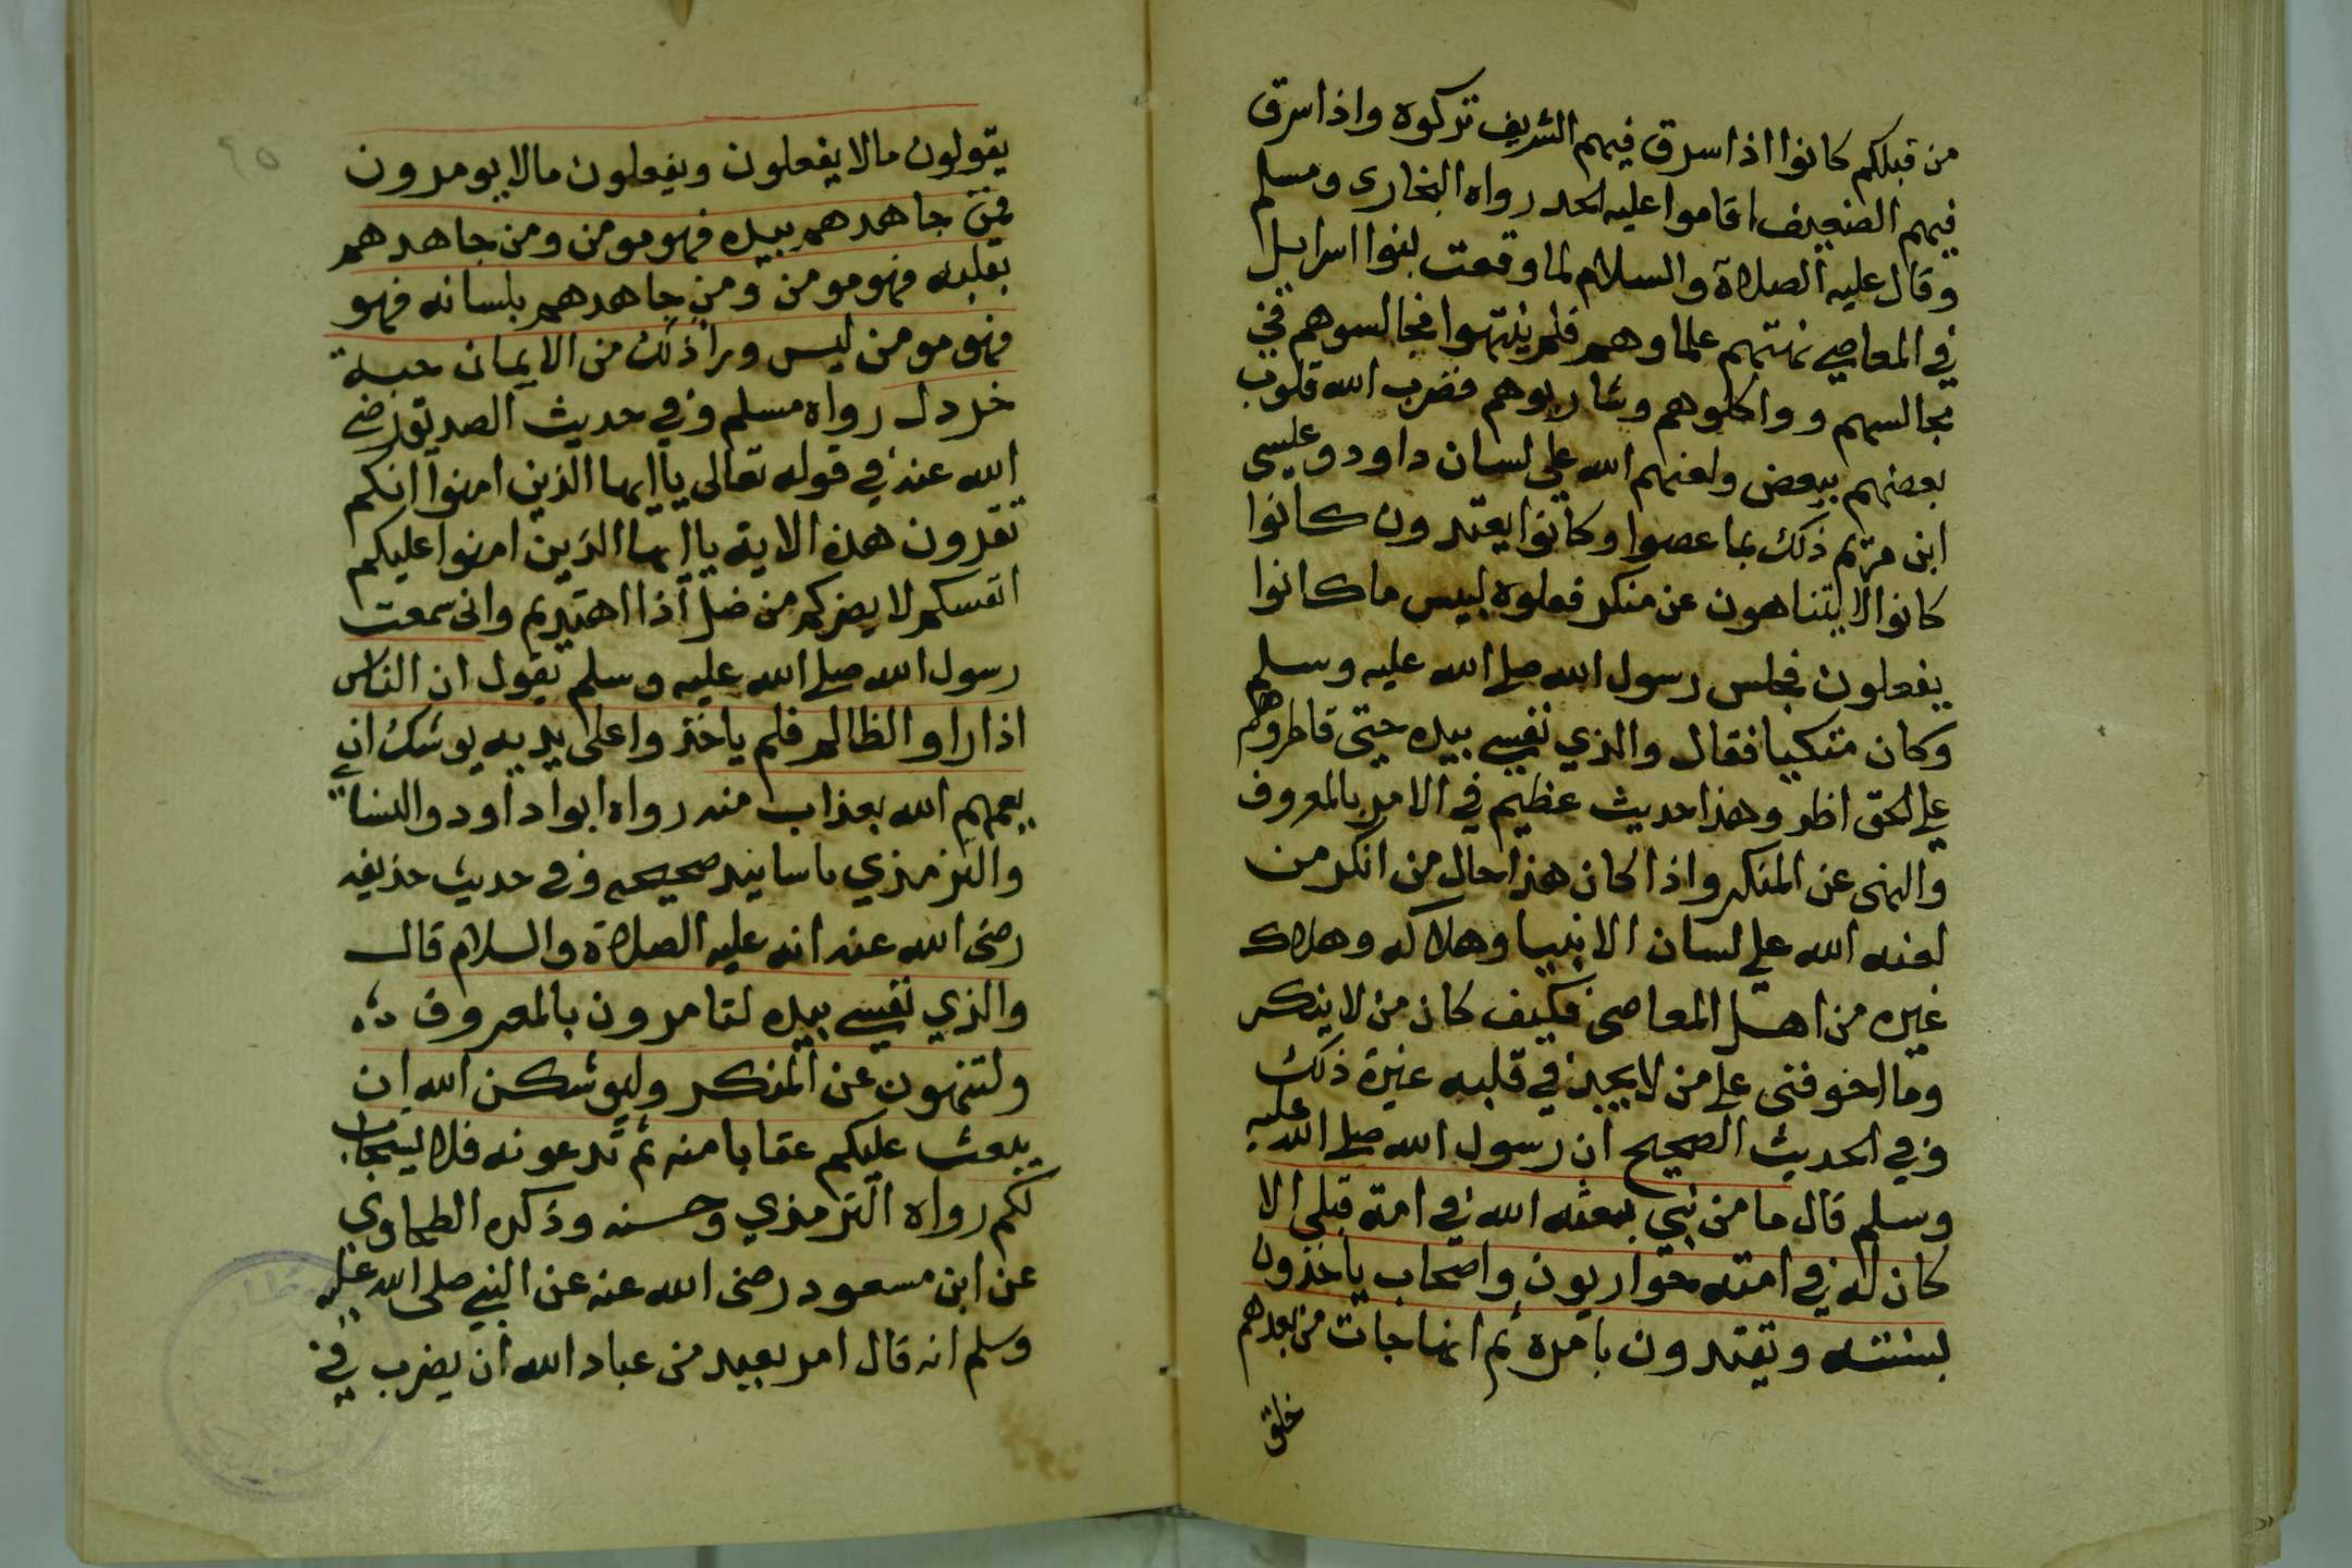 من قبلكم كانوا اذا سرق فيهم الشريف تركوه واذا سرق
فيهم الضعيف اقاموا عليه الحد رواه البخارى ومسلم
وقال عليه الصلاة والسلام لما وقعت بنوا اسرايل
في المعاصي نهتهم علماوهم فلم ينتهوا فجالسوهم في
مجالسهم وواكلوهم وشاربوهم فضرب الله قلوب
بعضهم ببعض ولعنهم الله على لسان داود وعليسى
ابن مريم ذلك بما عصوا وكانوا يعتدون كانوا
كانوا لا يتناهون عن منكر فعلوه لبيس ما كانوا
يفعلون فجلس رسول الله صلى الله عليه وسلم
وكان متكيا فقال والذي نفسي بيده حيتى قاطروهم
على الحق اظر وهذا حديث عظيم في الامر بالمعروف
والنهى عن المنكر واذا كان هذا حال من انكر من
لعنه الله على لسان الانبيا وهلاكه وهلاك
غيره من اهل المعاصى فكيف كان من لا ينكر
وما اخوفنى على من لا يجد في قلبه غيرة ذلك
وفي الحديث الصحيح ان رسول الله صلى الله عليه
وسلم قال ما من نبي بعثه الله في امة قبلي الا
كان له في امته حواريون واصحاب ياخذون
بسنته وتقتدون بامره ثم انها جات من بعدهم
خلق
٤٥
يقولون مالا يفعلون ويفعلون مالا يومرون
فمن جاهدهم بيده فهو مومن ومن جاهدهم
بقلبه فهو مومن ومن جاهدهم بلسانه فهو
فهو مومن ليس ورا ذلك من الايمان حبة
خردل رواه مسلم وفي حديث الصديق رضي
الله عنه في قوله تعالى يا ايها الذين امنوا انكم
تقرون هذه الاية يا ايها الذين امنوا عليكم
انفسكم لا يضركم من ضل اذا اهتديتم وانى سمعت
رسول الله صلى الله عليه وسلم يقول ان الناس
اذا راو الظالم فلم ياخذوا على يديه يوشك ان
يعمهم الله بعذاب منه رواه ابوا داود والنسائي
والترمذي باسانيد صحيحه وفي حديث حذيفه
رضى الله عنه انه عليه الصلاة والسلام قال
والذي نفسي بيده لتامرون بالمعروف
ولتنهون عن المنكر وليوشكن الله ان
يبعث عليكم عقابا منه ثم تدعونه فلا ليتجاب
لكم رواه الترمذي وحسنه وذكره الطحاوي
عن ابن مسعود رضى الله عنه عن النبي صلى الله عليه
وسلم انه قال امر بعبد من عباد الله ان يضرب في